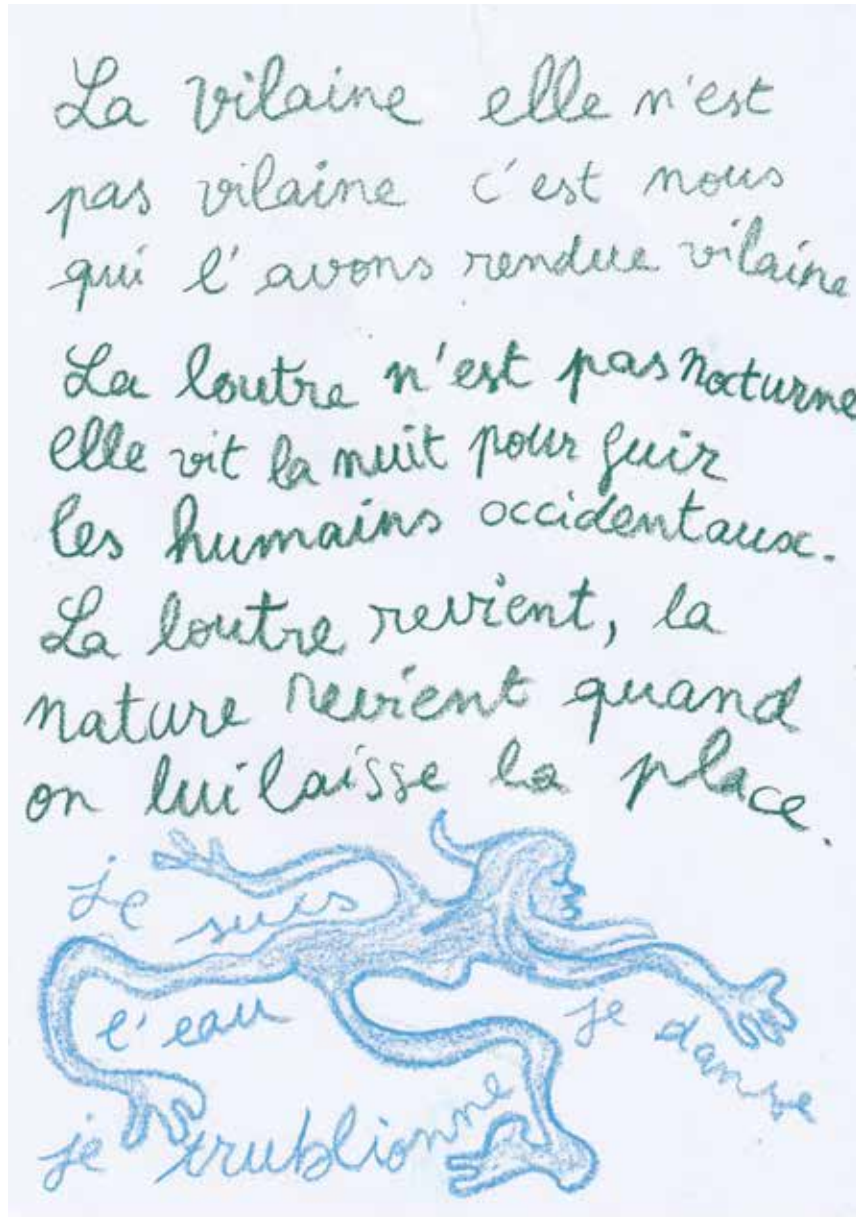 La vilaine elle n'est
pas vilaine c'est nous
qui l'avons rendue vilaine
La loutre n'est pas nocturne
elle vit la nuit pour fuir
les humains occidentaux.
La loutre revient, la
nature revient quand
on lui laisse la place.
je suis
l'eau
je danse
je trublionne